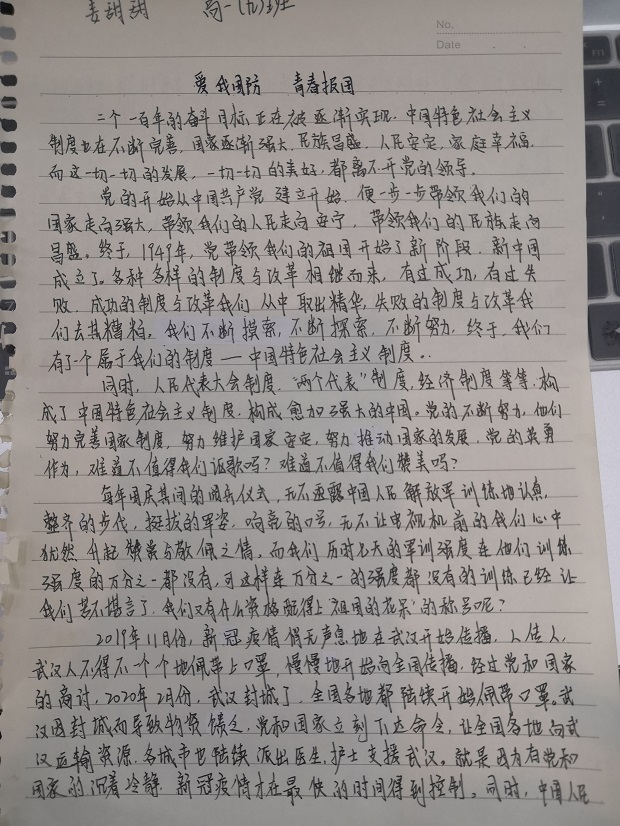 姜甜甜 高一(九)班
No.
Date
爱我国防 青春报国
二个一百年的奋斗目标正在被逐渐实现. 中国特色社会主义
制度也在不断完善, 国家逐渐强大, 民族昌盛, 人民安定, 家庭幸福.
而这一切一切的发展, 一切一切的美好, 都离不开党的领导.
党的开始从中国共产党建立开始, 便一步一步带领我们的
国家走向强大, 带领我们的人民走向安宁, 带领我们的民族走向
昌盛。终于, 1949年, 党带领我们的祖国开始了新阶段, 新中国
成立了。各种多样的制度与改革相继而来, 有过成功, 有过失
败. 成功的制度与改革我们从中取出精华, 失败的制度与改革我
们去其糟粕, 我们不断摸索, 不断探索, 不断努力, 终于, 我们
有了一个属于我们的制度——中国特色社会主义制度!.
同时, 人民代表大会制度, “两个代表”制度, 经济制度等等, 构
成了中国特色社会主义制度, 构成愈加强大的中国。党的不断努力, 他们
努力完善国家制度, 努力维护国家安定, 努力推动国家的发展, 党的英勇
作为, 难道不值得我们讴歌吗? 难道不值得我们赞美吗?
每年国庆其间的阅兵仪式, 无不透露中国人民解放军训练地认真,
整齐的步伐, 挺拔的军姿, 响亮的口号, 无不让电视机前的我们心中
犹然升起赞赏与敬佩之情, 而我们历时七天的军训强度连他们训练
强度的万分之一都没有, 可这样连万分之一的强度都没有的训练已经让
我们苦不堪言了, 我们又有什么资格配得上“祖国的花朵”的称号呢?
2019年11月份, 新冠疫情悄无声息地在武汉开始传播, 人传人,
武汉人不得不一个个地佩带上口罩, 慢慢地开始向全国传播, 经过党和国家
的商讨, 2020年2月份, 武汉封城了, 全国各地都陆续开始佩带口罩。武
汉因封城而导致物资馈乏, 党和国家立刻下达命令, 让全国各地向武
汉运输资源, 各城市也陆续派出医生, 护士支援武汉。就是因为有党和
国家的沉着冷静, 新冠疫情才在最快的时间得到控制。同时, 中国人民